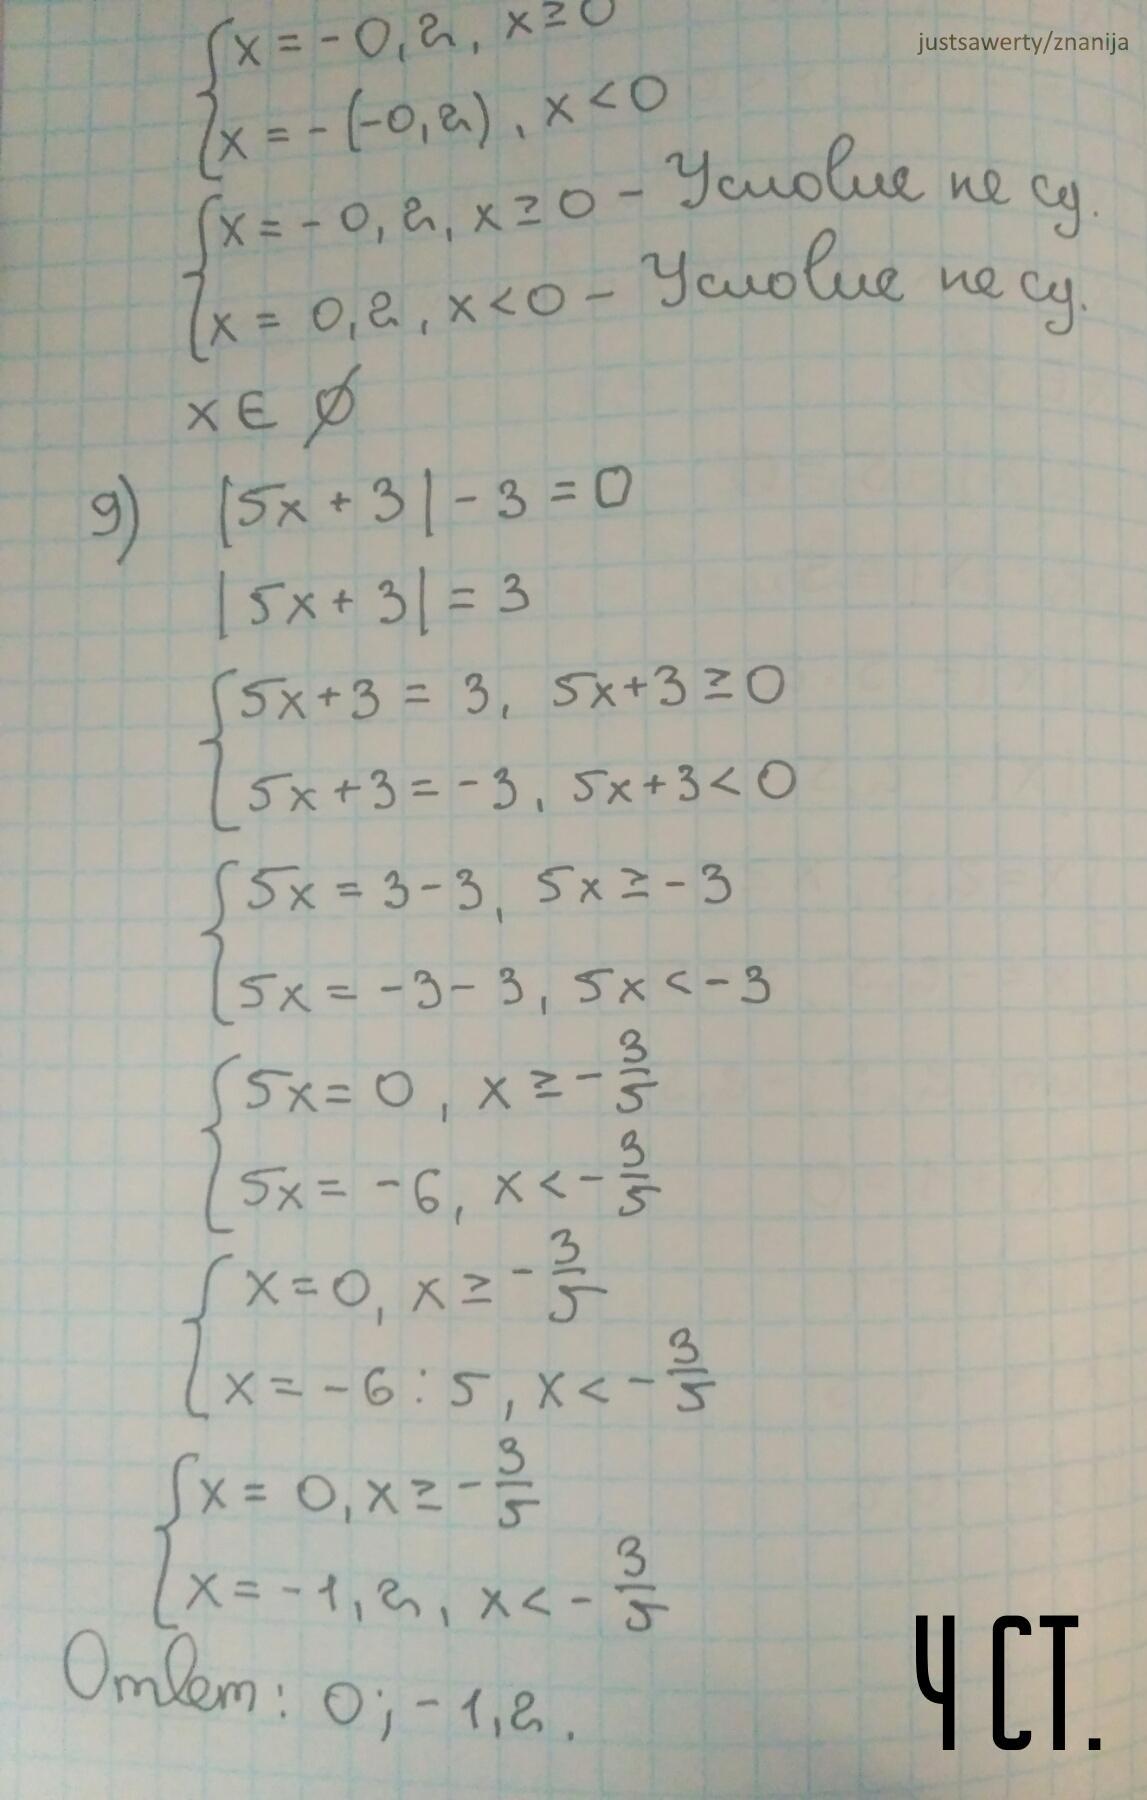 justsawerty/znanija
x = -0,2, x ≥ 0
x = -(-0,2), x < 0
x = -0,2, x ≥ 0 - Условие не су.
x = 0,2, x < 0 - Условие не су.
x ∈ ∅
9) |5x + 3| - 3 = 0
|5x + 3| = 3
5x + 3 = 3, 5x + 3 ≥ 0
5x + 3 = -3, 5x + 3 < 0
5x = 3 - 3, 5x ≥ -3
5x = -3 - 3, 5x < -3
5x = 0, x ≥ -3/5
5x = -6, x < -3/5
x = 0, x ≥ -3/5
x = -6 : 5, x < -3/5
x = 0, x ≥ -3/5
x = -1,2, x < -3/5
Ответ: 0; -1,2.
4 СТ.